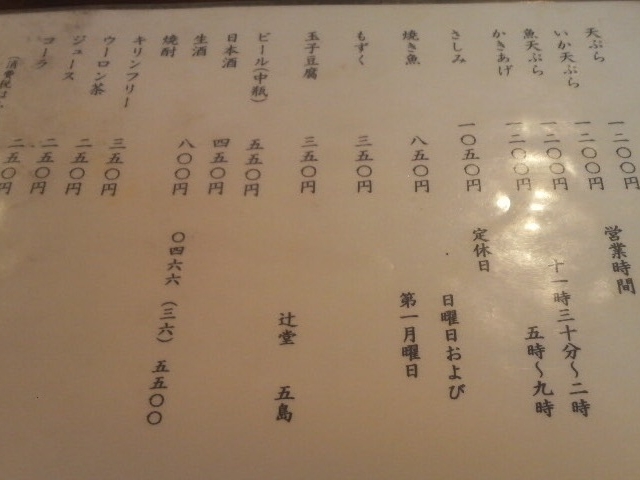 天ぷら 一二〇〇円
いか天ぷら 一二〇〇円
魚天ぷら 一二〇〇円
かきあげ 一二〇〇円
さしみ 一〇五〇円
焼き魚 八五〇円
もずく 三五〇円
玉子豆腐 三五〇円
ビール(中瓶) 五五〇円
日本酒 四五〇円
生酒 八〇〇円
焼酎
キリンフリー 三五〇円
ウーロン茶 二五〇円
ジュース 二五〇円
コーラ 二五〇円
(消費税は
営業時間
十一時三十分〜二時
五時〜九時
定休日
日曜日および
第一月曜日
辻堂 五島
〇四六六(三六)五五〇〇